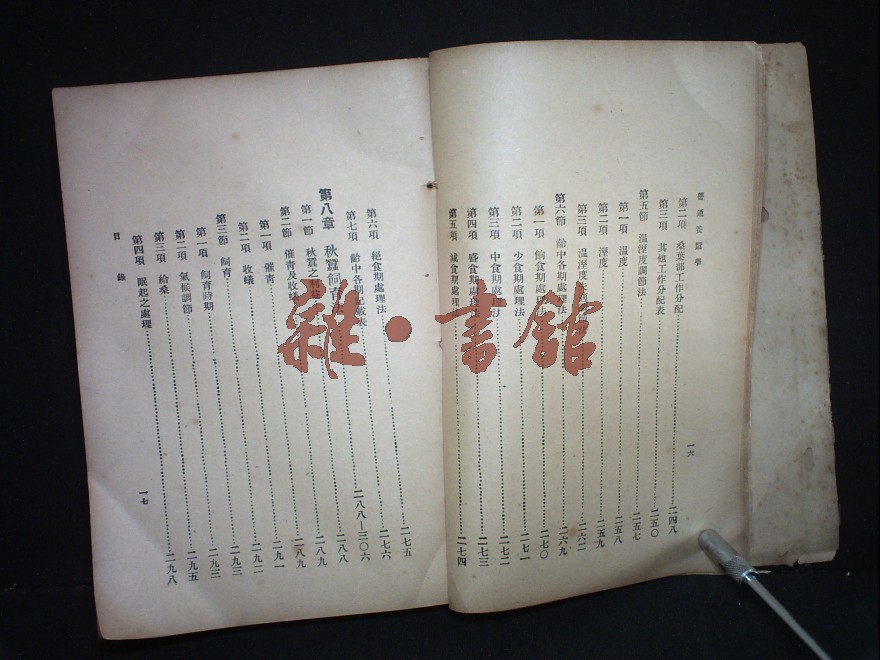 普通養蠶學
第二項 桑葉部工作分配……二四八
第三項 其他工作分配表……二五〇
第五節 溫溼度調節法……二五七
第一項 溫度……二五八
第二項 溼度……二五九
第三項 溫溼度……二六二
第六節 齡中各期處理法……二六九
第一項 餉食期處理法……二七〇
第二項 少食期處理法……二七一
第三項 中食期處理法……二七二
第四項 盛食期處理法……二七三
第五項 減食期處理法……二七四
一六
第六項 絕食期處理法……二七五
第七項 齡中各期記載表……二七六
第八章 秋蠶飼育法……二八八—三〇六
第一節 秋蠶之利益……二八八
第二節 催青及收蟻……二八九
第一項 催青……二九一
第二項 收蟻……二九二
第三節 飼育……二九三
第一項 飼育時期……二九三
第二項 氣候調節……二九五
第三項 給桑……二九八
第四項 眠起之處理
目錄
一七
雜·書館